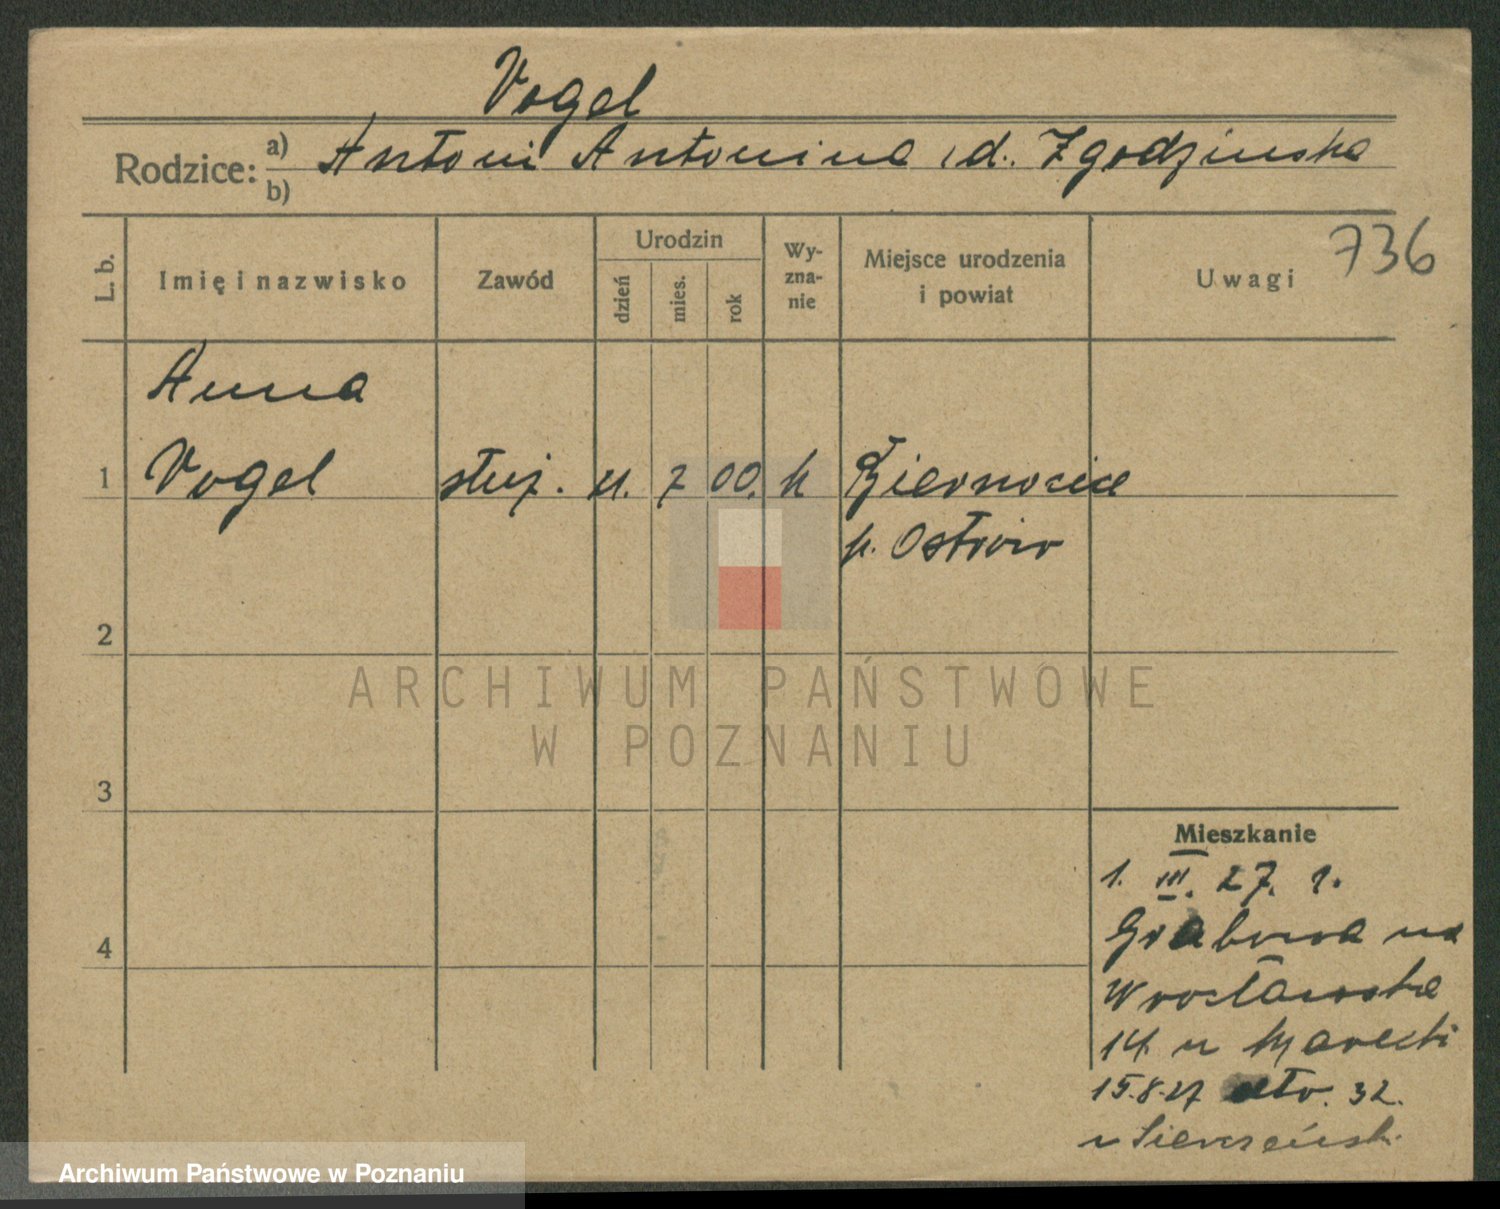 Vogel
Rodzice: a) Antoni Antonina , d. Zgodzinska
b)
736
L. b. Imię i nazwisko Zawód Urodzin dzień mies. rok Wy-zna-nie Miejsce urodzenia i powiat Uwagi
Anna
1 Vogel służ. 7 00. k
p. Ostrów
2
ARCHIWUM PAŃSTWOWE
W POZNANIU
3
Mieszkanie
1. III. 27. r.
4
Grabowa na
Wrocławska
14. u Marecki
15.8.27 32.
u
Archiwum Państwowe w Poznaniu